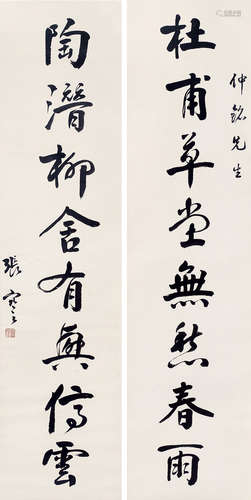 仲銘先生
杜甫草堂無愁春雨
陶潛柳舍有興停雲
張